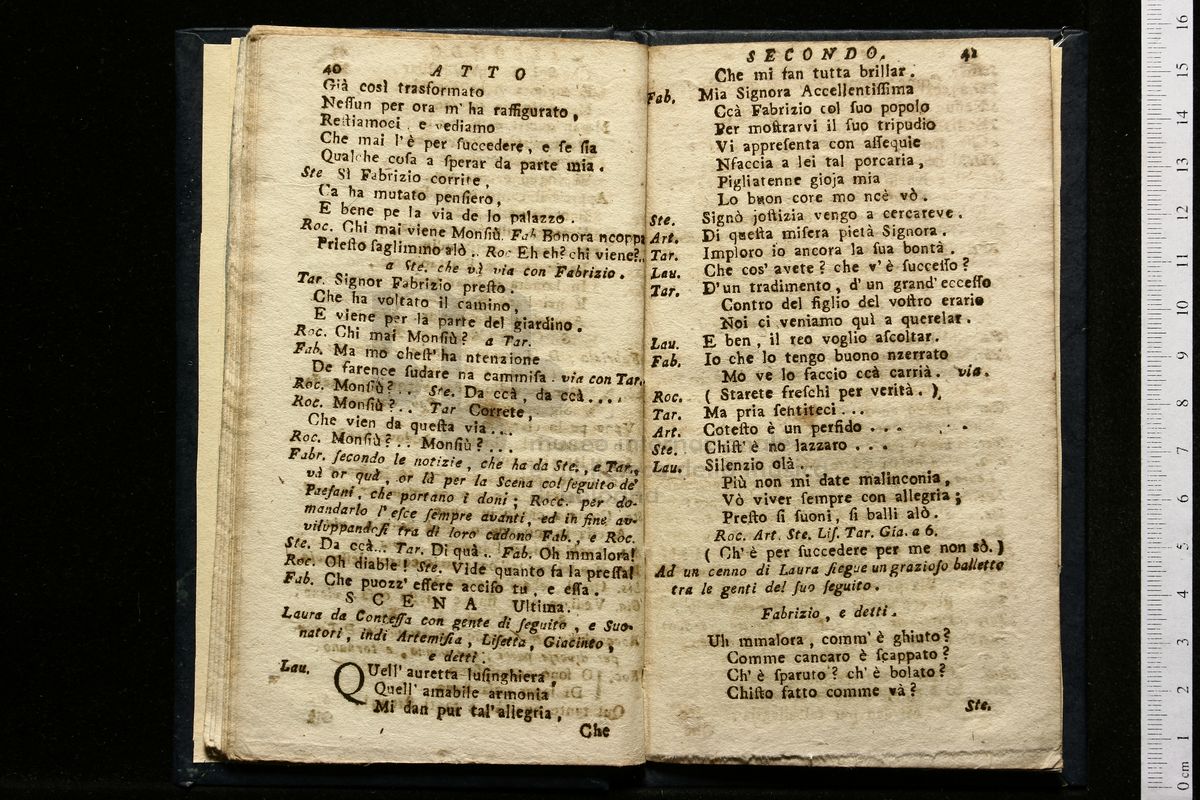 40 ATTO
Già così trasformato
Nessun per ora m' ha raffigurato,
Restiamoci, e vediamo
Che mai l' è per succedere, e se sia
Qualche cosa a sperar da parte mia.
Ste Sì Fabrizio corrite,
Ca ha mutato pensiero,
E bene pe la via de lo palazzo.
Roc. Chi mai viene Monsiù. Fab Bonora ncoppa
Priesto saglimmo alò.. Roc Eh eh? chi viene?..
a Ste. che và via con Fabrizio.
Tar. Signor Fabrizio presto.
Che ha voltato il camino,
E viene per la parte del giardino.
Roc. Chi mai Monsiù? a Tar.
Fab. Ma mo chest' ha ntenzione
De farence sudare na cammisa. via con Tar.
Roc. Monsiù?.. Ste. Da ccà, da ccà....
Roc. Monsiù?.. Tar Correte,
Che vien da questa via...
Roc. Monsiù?... Monsiù?...
Fabr. secondo le notizie, che ha da Ste., e Tar.,
và or quà, or là per la Scena col seguito de'
Paesani, che portano i doni; Rocc. per do-
mandarlo l' esce sempre avanti, ed in fine av-
viluppandosi tra di loro cadono Fab., e Roc.
Ste. Da ccà... Tar. Di quà.. Fab. Oh mmalora!
Roc. Oh diable! Ste. Vide quanto fa la pressa!
Fab. Che puozz' essere acciso tu, e essa.
SCENA Ultima.
Laura da Contessa con gente di seguito, e Suo-
natori, indi Artemisia, Lisetta, Giacinto,
e detti.
Lau. QUell' auretta lusinghiera,
Quell' amabile armonia
Mi dan pur tal' allegria,
Che
SECONDO. 41
Che mi fan tutta brillar.
Fab. Mia Signora Accellentissima
Ccà Fabrizio col suo popolo
Per mostrarvi il suo tripudio
Vi appresenta con assequie
Nfaccia a lei tal porcaria,
Pigliatenne gioja mia
Lo buon core mo ncè vò.
Ste. Signò jostizia vengo a cercareve.
Art. Di questa misera pietà Signora.
Tar. Imploro io ancora la sua bontà.
Lau. Che cos' avete? che v' è successo?
Tar. D' un tradimento, d' un grand' eccesso
Contro del figlio del vostro erario
Noi ci veniamo quì a querelar.
Lau. E ben, il reo voglio ascoltar.
Fab. Io che lo tengo buono nzerrato
Mo ve lo faccio ccà carrià. via.
Roc. ( Starete freschi per verità. )
Tar. Ma pria sentiteci...
Art. Cotesto è un perfido....
Ste. Chist' è no lazzaro...
Lau. Silenzio olà.
Più non mi date malinconia,
Vò viver sempre con allegria;
Presto si suoni, si balli alò.
Roc. Art. Ste. Lis. Tar. Gia. a 6.
( Ch' è per succedere per me non sò. )
Ad un cenno di Laura siegue un grazioso balletto
tra le genti del suo seguito.
Fabrizio, e detti.
Uh mmalora, comm' è ghiuto?
Comme cancaro è scappato?
Ch' è sparuto? ch' è bolato?
Chisto fatto comme và?
Ste.